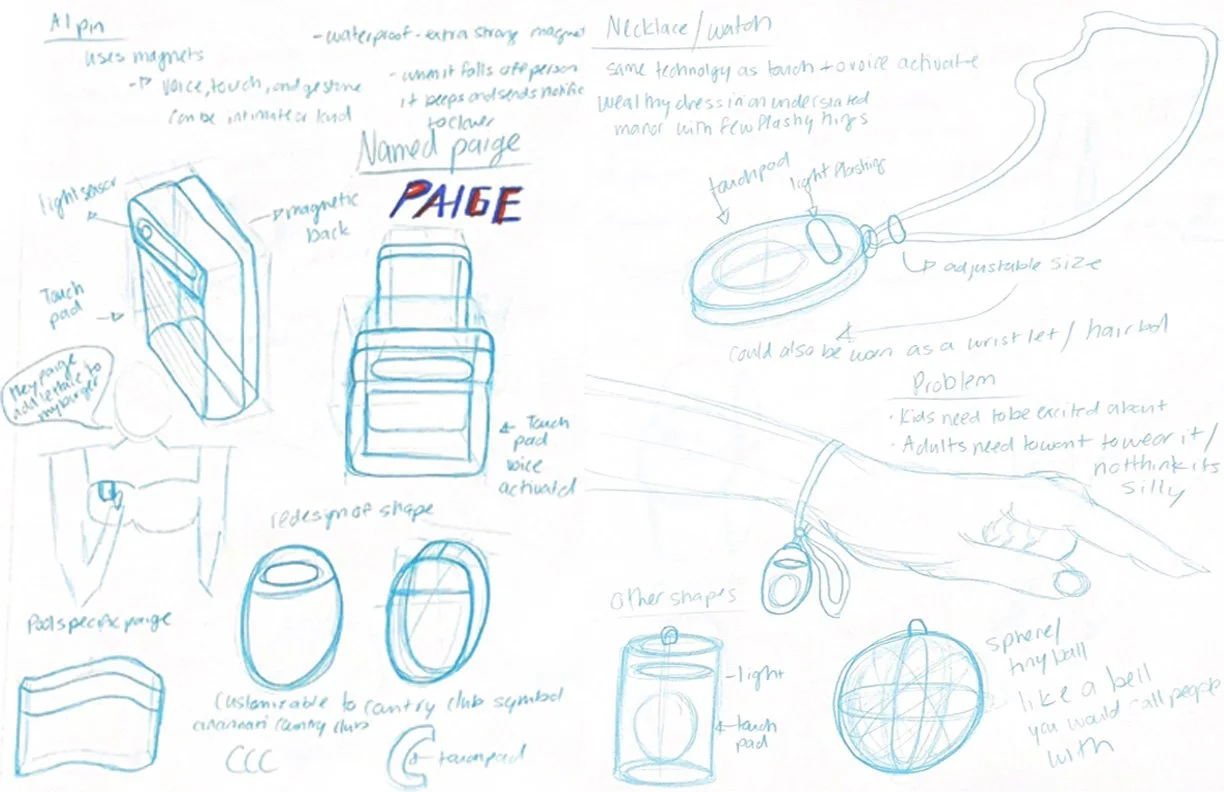 AI pin
uses magnets
-> voice, touch, and gesture
can be intimate or loud
- waterproof - extra strong magnet
- when it falls off person
it beeps and sends notific
to clubhr
Named paige
PAIGE
light sensor
magnetic
back
Touch
pad
Hey paige
add lettuce to
my burger
Touch
pad
voice
activated
redesign of shape
Pool specific paige
Customizable to cantry club symbol
cantry club
CCC
touchpad
Necklace/watch
same technolgy as touch + o voice activate
wealthy dress in an understated
manor with few flashy things
touchpad
light flashing
adjustable size
could also be worn as a wristlet/ hair
Problem
· Kids need to be excited about
· Adults need to want to wear it/
not think its
silly
other shapes
light
touch
pad
sphere/
tiny ball
like a bell
you would call people
with